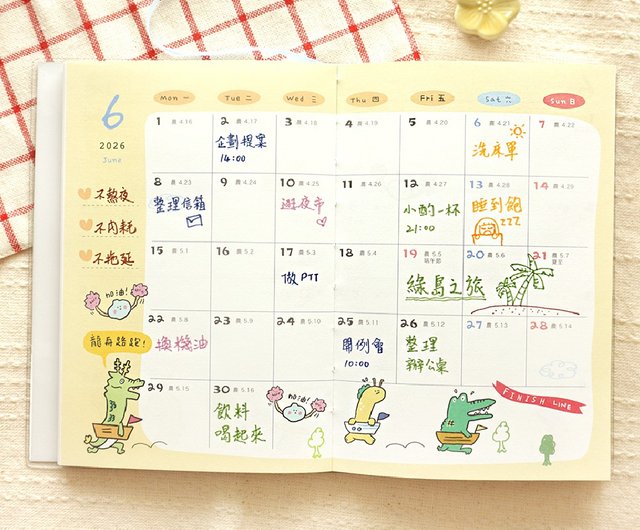 6
2026
June
Mon 一
Tue 二
Wed 三
Thu 四
Fri 五
Sat 六
Sun 日
1 農 4.16
2 農 4.17
企劃提案
14:00
3 農 4.18
4 農 4.19
5 農 4.20
6 農 4.21
洗床單
7 農 4.22
♡ 不熬夜
♡ 不內耗
♡ 不拖延
8 農 4.23
整理信箱
9 農 4.24
10 農 4.25
逛夜市
11 農 4.26
12 農 4.27
小酌一杯
21:00
13 農 4.28
睡到飽
zzz
14 農 4.29
15 農 5.1
16 農 5.2
17 農 5.3
做PTT
18 農 5.4
19 農 5.5
端午節
綠島之旅
20 農 5.6
21 農 5.7
夏至
加油!
龍舟路跑!
22 農 5.8
換機油
23 農 5.9
24 農 5.10
25 農 5.11
開例會
10:00
26 農 5.12
整理
辦公桌
27 農 5.13
28 農 5.14
29 農 5.15
30 農 5.16
飲料
喝起來
加油!
FINISH LINE